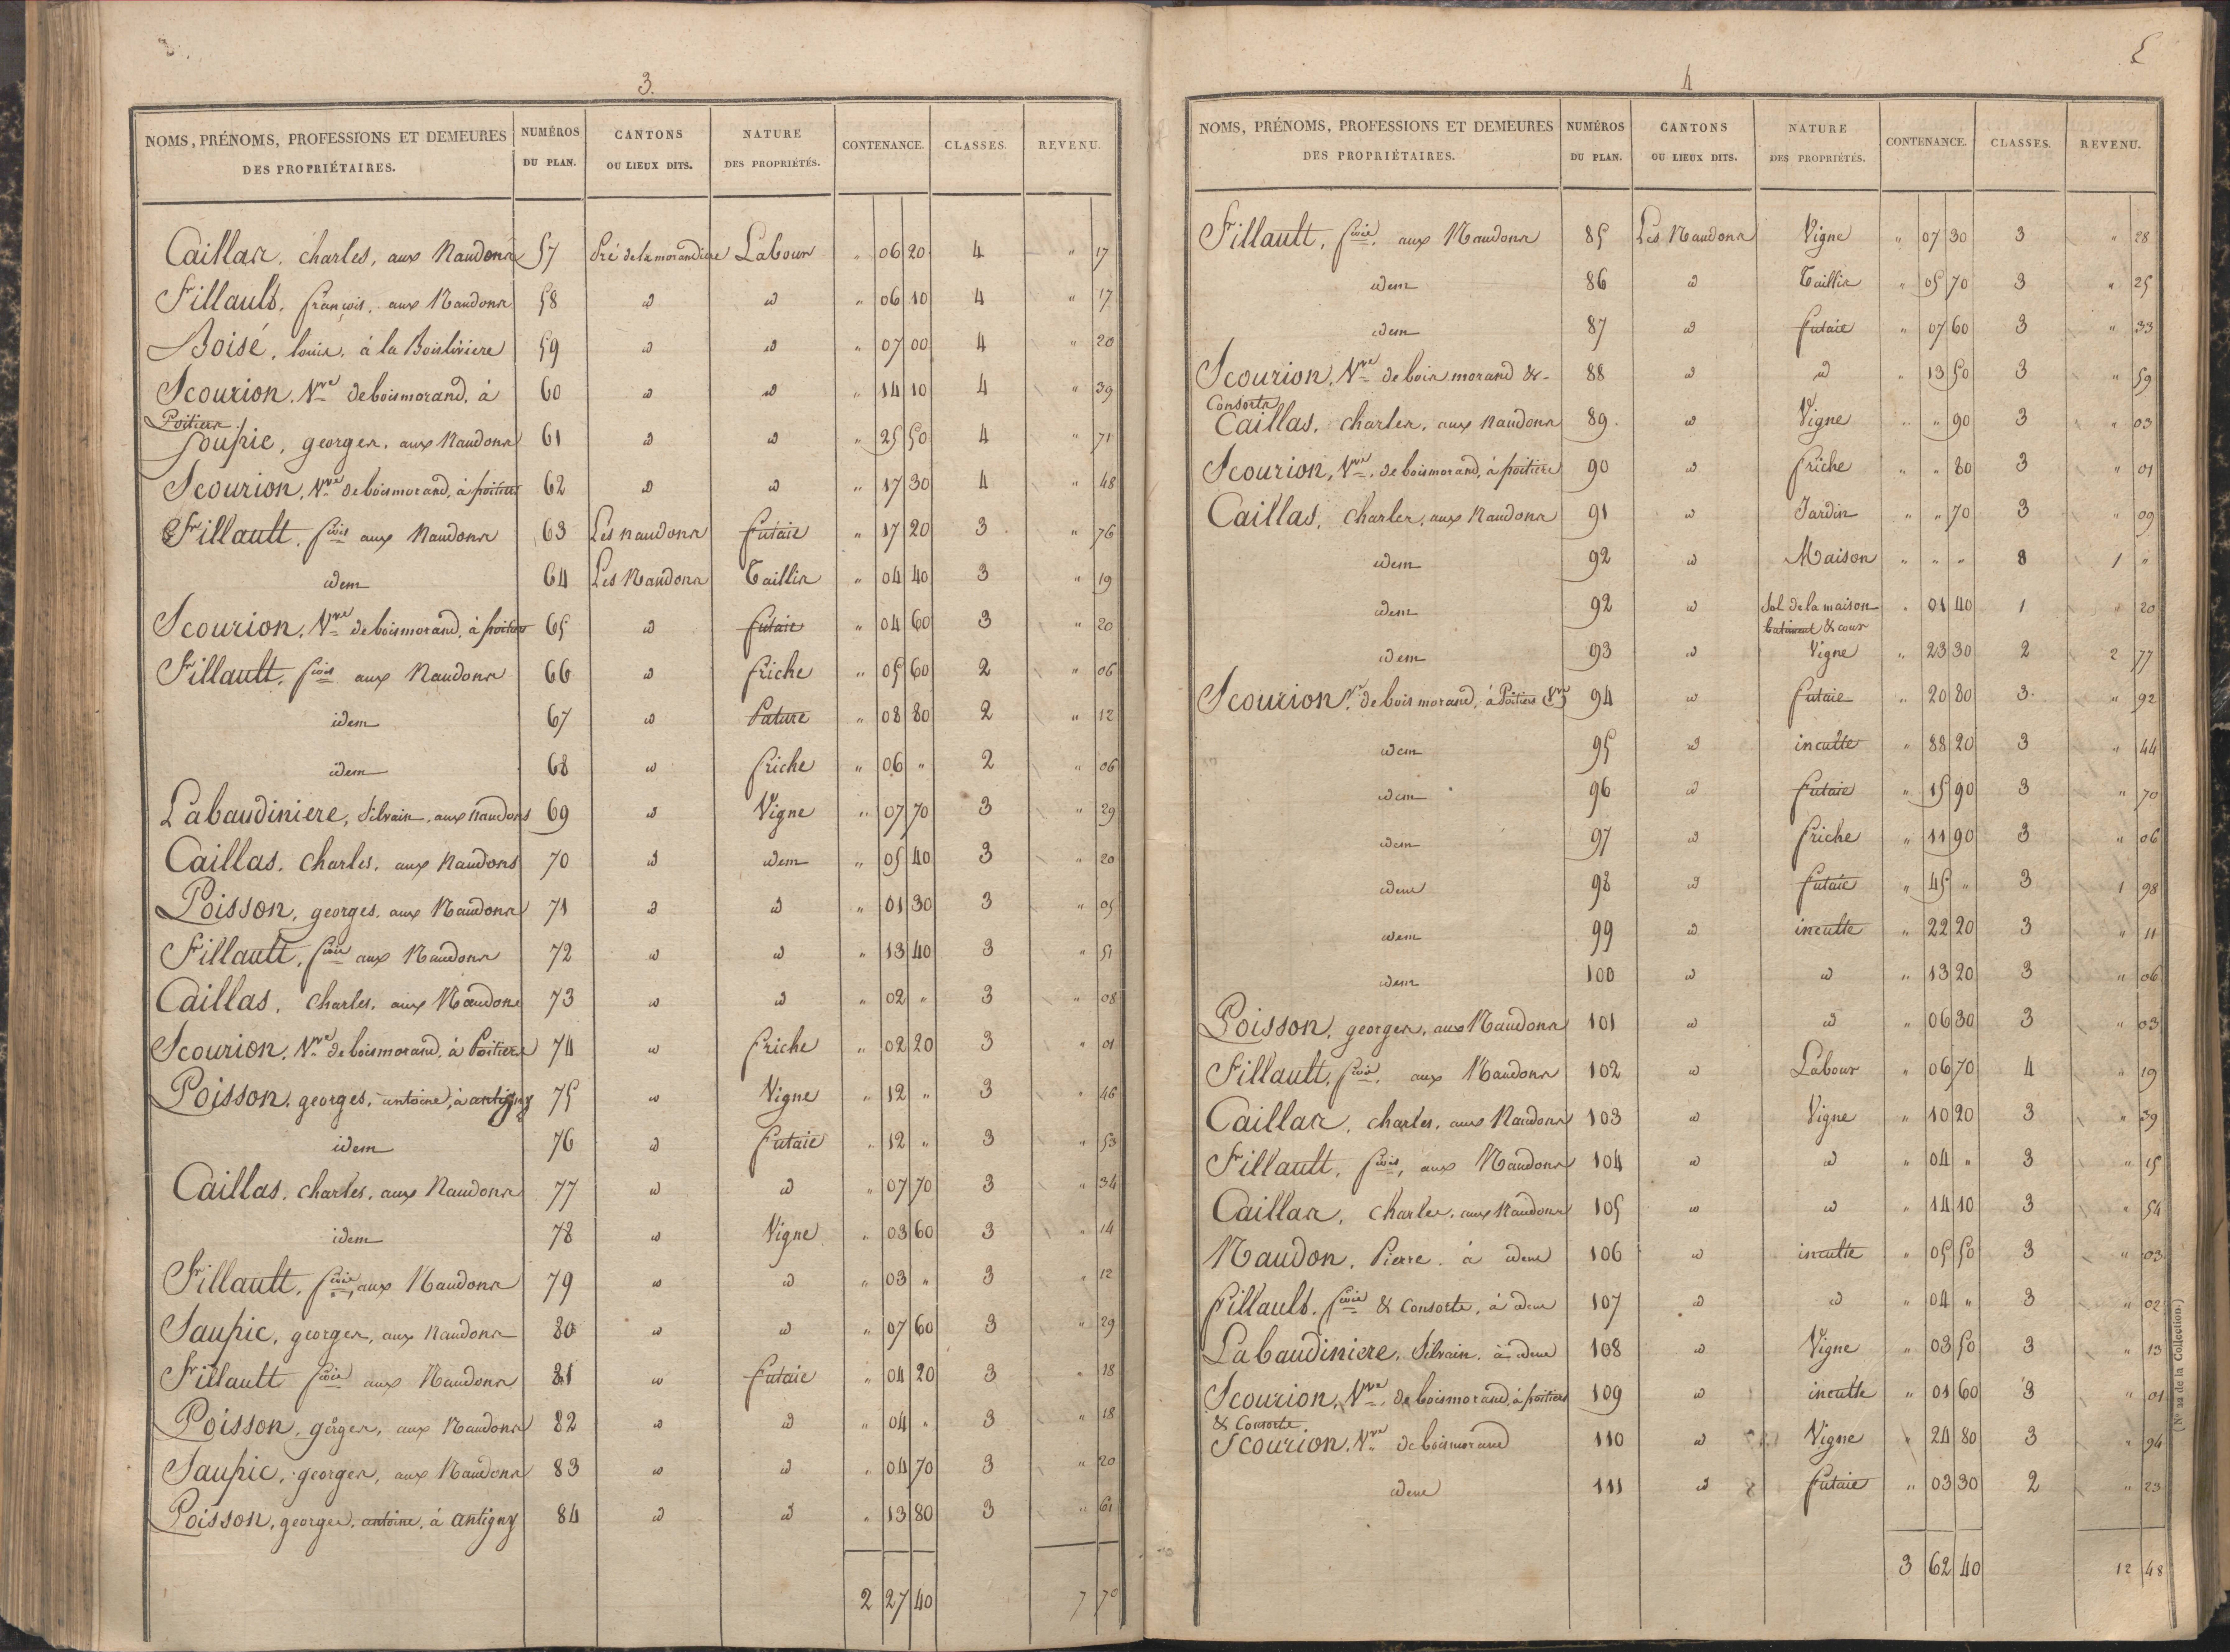 3.
NOMS, PRÉNOMS, PROFESSIONS ET DEMEURES DES PROPRIÉTAIRES. NUMÉROS DU PLAN. CANTONS OU LIEUX DITS. NATURE DES PROPRIÉTÉS. CONTENANCE. CLASSES. REVENU.
Caillas, charles, aux Naudons 57 Pré de la morandiere Labour " 06 20 4 " 17
Fillault, françois, aux Naudons 58 id id " 06 10 4 " 17
Boisé, louis, à la Boisliviere 59 id id " 07 00 4 " 20
Scourion, Vve de boismorand, à Poitiers 60 id id " 14 10 4 " 39
Soupic, georges, aux Naudons 61 id id " 25 50 4 " 71
Scourion, Vve de boismorand, à poitiers 62 id id " 17 30 4 " 48
Fillault, fçois aux Naudons 63 Les naudons futaie " 17 20 3 " 76
idem 64 Les Naudons Taillis " 04 40 3 " 19
Scourion, Vve de boismorand, à poitiers 65 id futaie " 04 60 3 " 20
Fillault, fçois aux Naudons 66 id friche " 05 60 2 " 06
idem 67 id Pature " 08 80 2 " 12
idem 68 id friche " 06 " 2 " 06
Labaudiniere, Silvain, aux naudons 69 id Vigne " 07 70 3 " 29
Caillas, Charles, aux Naudons 70 id idem " 05 40 3 " 20
Poisson, georges, aux Naudons 71 id id " 01 30 3 " 05
Fillault, fçois aux Naudons 72 id id " 13 40 3 " 51
Caillas, Charles, aux Naudons 73 id id " 02 " 3 " 08
Scourion, Vve de boismorand, à Poitiers 74 id friche " 02 20 3 " 01
Poisson, georges, antoine, à antigny 75 id Vigne " 12 " 3 " 46
idem 76 id futaie " 12 " 3 " 53
Caillas, charles, aux Naudons 77 id id " 07 70 3 " 34
idem 78 id Vigne " 03 60 3 " 14
Fillault, fçois, aux Naudons 79 id id " 03 " 3 " 12
Saupic, georges, aux naudons 80 id id " 07 60 3 " 29
Fillault fçois aux Naudons 81 id futaie " 04 20 3 " 18
Poisson, görges, aux Naudons 82 id id " 04 " 3 " 18
Saupic, georges, aux Naudons 83 id id " 04 70 3 " 20
Poisson, georges, antoine, à antigny 84 id id " 13 80 3 " 61
2 27 40 7 70
4
NOMS, PRÉNOMS, PROFESSIONS ET DEMEURES DES PROPRIÉTAIRES. NUMÉROS DU PLAN. CANTONS OU LIEUX DITS. NATURE DES PROPRIÉTÉS. CONTENANCE. CLASSES. REVENU.
Fillault, fçois, aux Naudons 85 Les Naudons Vigne " 07 30 3 " 28
idem 86 id Taillis " 05 70 3 " 25
idem 87 id futaie " 07 60 3 " 33
Scourion, Vve de bois morand & Consorts 88 id id " 13 50 3 " 59
Caillas, charles, aux naudons 89 id Vigne " " 90 3 " 03
Scourion, Vve, de boismorand, à poitiers 90 id friche " " 80 3 " 01
Caillas, charles, aux Naudons 91 id Jardin " " 70 3 " 09
idem 92 id Maison " " " 8 1 "
idem 92 id Sol de la maison batiment & cour " 01 40 1 " 20
idem 93 id Vigne " 23 30 2 2 77
Scourion, Ve de bois morand, à Poitiers 94 id futaie " 20 80 3 " 92
idem 95 id inculte " 88 20 3 " 44
idem 96 id futaie " 15 90 3 " 70
idem 97 id friche " 11 90 3 " 06
idem 98 id futaie " 45 " 3 1 98
idem 99 id inculte " 22 20 3 " 11
idem 100 id id " 13 20 3 " 06
Poisson, georges, aux Naudons 101 id id " 06 30 3 " 03
Fillault, fçois, aux Naudons 102 id Labour " 06 70 4 " 19
Caillas, charles, aux Naudons 103 id Vigne " 10 20 3 " 39
Fillault, fçois, aux Naudons 104 id id " 04 " 3 " 15
Caillas, Charles, aux Naudons 105 id id " 14 10 3 " 54
Naudon, Pierre, à idem 106 id inculte " 05 50 3 " 03
Fillault, fçois & Consorts, à idem 107 id id " 04 " 3 " 02
Labaudiniere, Silvain, à idem 108 id Vigne " 03 50 3 " 13
Scourion, Vve, de boismorand, à poitiers & Consorts 109 id inculte " 01 60 3 " 01
Scourion, Vve de boismorand 110 id Vigne " 24 80 3 " 94
idem 111 id futaie " 03 30 2 " 23
3 62 40 12 48
(N° 22 de la Collection.)